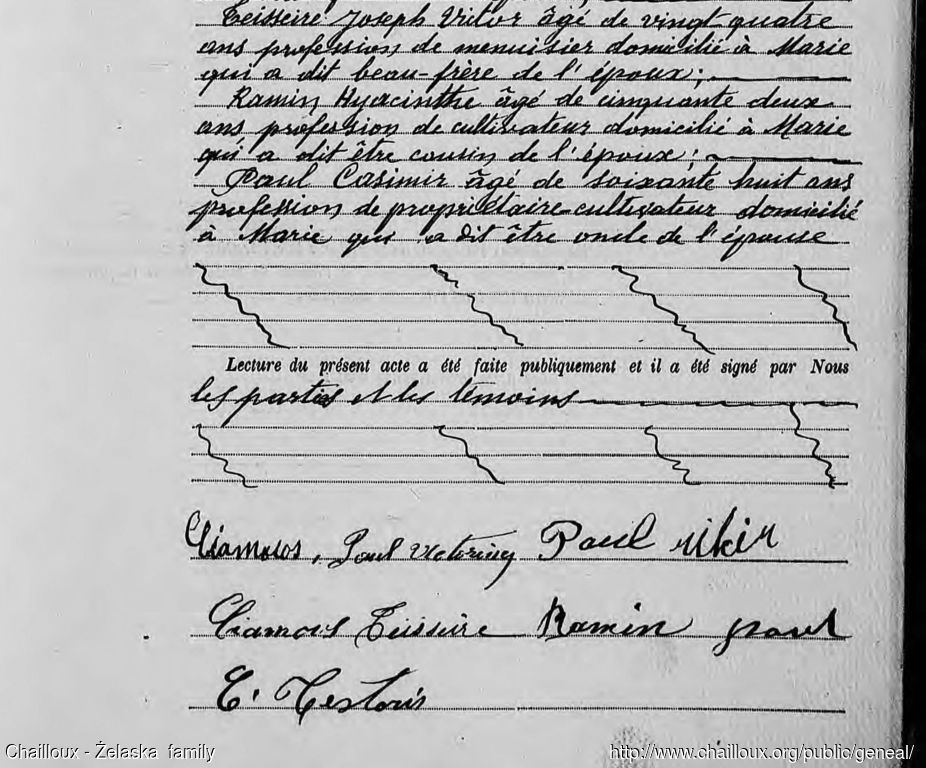 Teisseire Joseph Victor âgé de vingt quatre
ans profession de menuisier domicilié à Marie
qui a dit beau-frère de l'époux;
Ramin Hyacinthe âgé de cinquante deux
ans profession de cultivateur domicilié à Marie
qui a dit être cousin de l'époux;
Paul Casimir âgé de soixante huit ans
profession de propriétaire-cultivateur domicilié
à Marie qui a dit être oncle de l'épouse
Lecture du présent acte a été faite publiquement et il a été signé par Nous
les parties et les témoins
Ciamous, Paul Victorin Paul
Ciamous Teisseire Ramin paul
Chailloux - Żelaska family
http://www.chailloux.org/public/geneal/